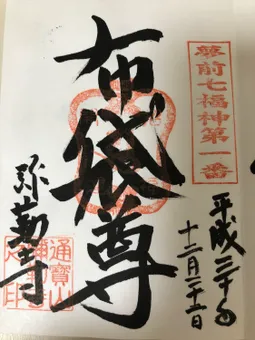 夢前七福神第一番
平成三十年
十二月二十二日
布袋尊
弥勒寺
通寳山